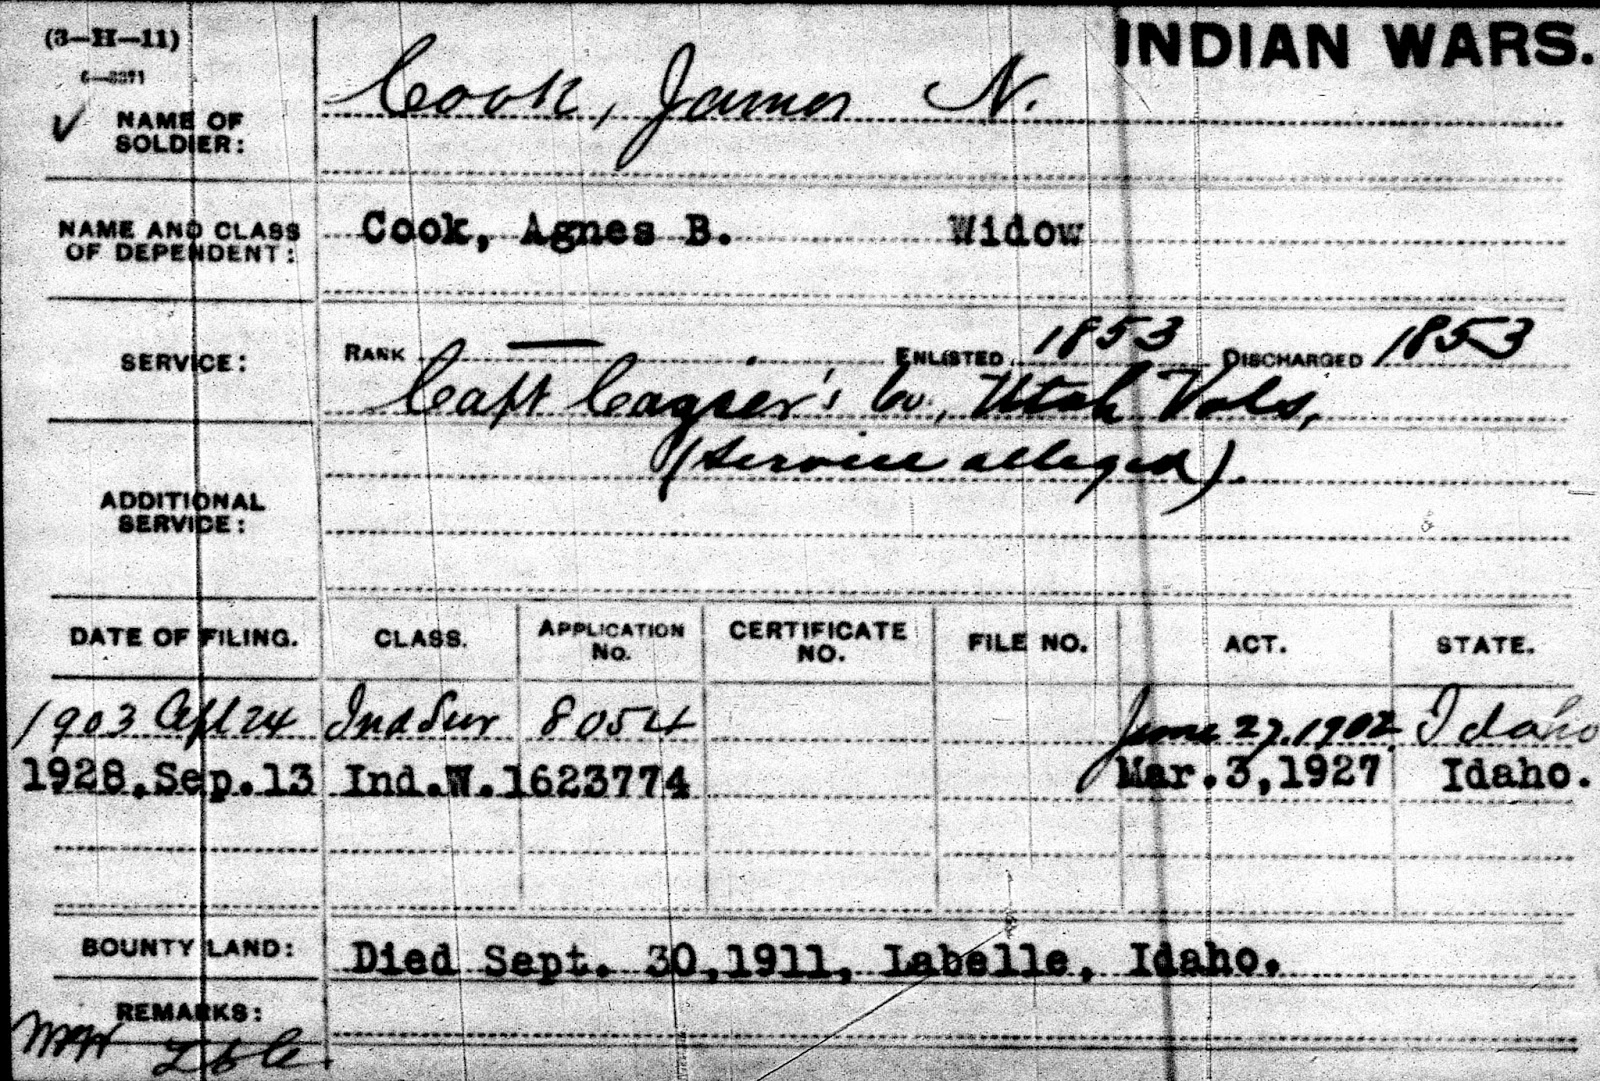 (3—H—11)
INDIAN WARS.
6—3371
NAME OF SOLDIER:
Cook, James N.
NAME AND CLASS OF DEPENDENT:
Cook, Agnes B. Widow
SERVICE:
RANK — ENLISTED 1853 DISCHARGED 1853
Capt Co., Utah Vols,
(Service alleged).
ADDITIONAL SERVICE:
DATE OF FILING. CLASS. APPLICATION NO. CERTIFICATE NO. FILE NO. ACT. STATE.
1903 Apl 24 Ind Sur 8054 June 27, 1902. Idaho
1928,Sep.13 Ind.W. 1623774 Mar.3,1927 Idaho.
BOUNTY LAND:
Died Sept. 30,1911, Labelle, Idaho.
REMARKS: